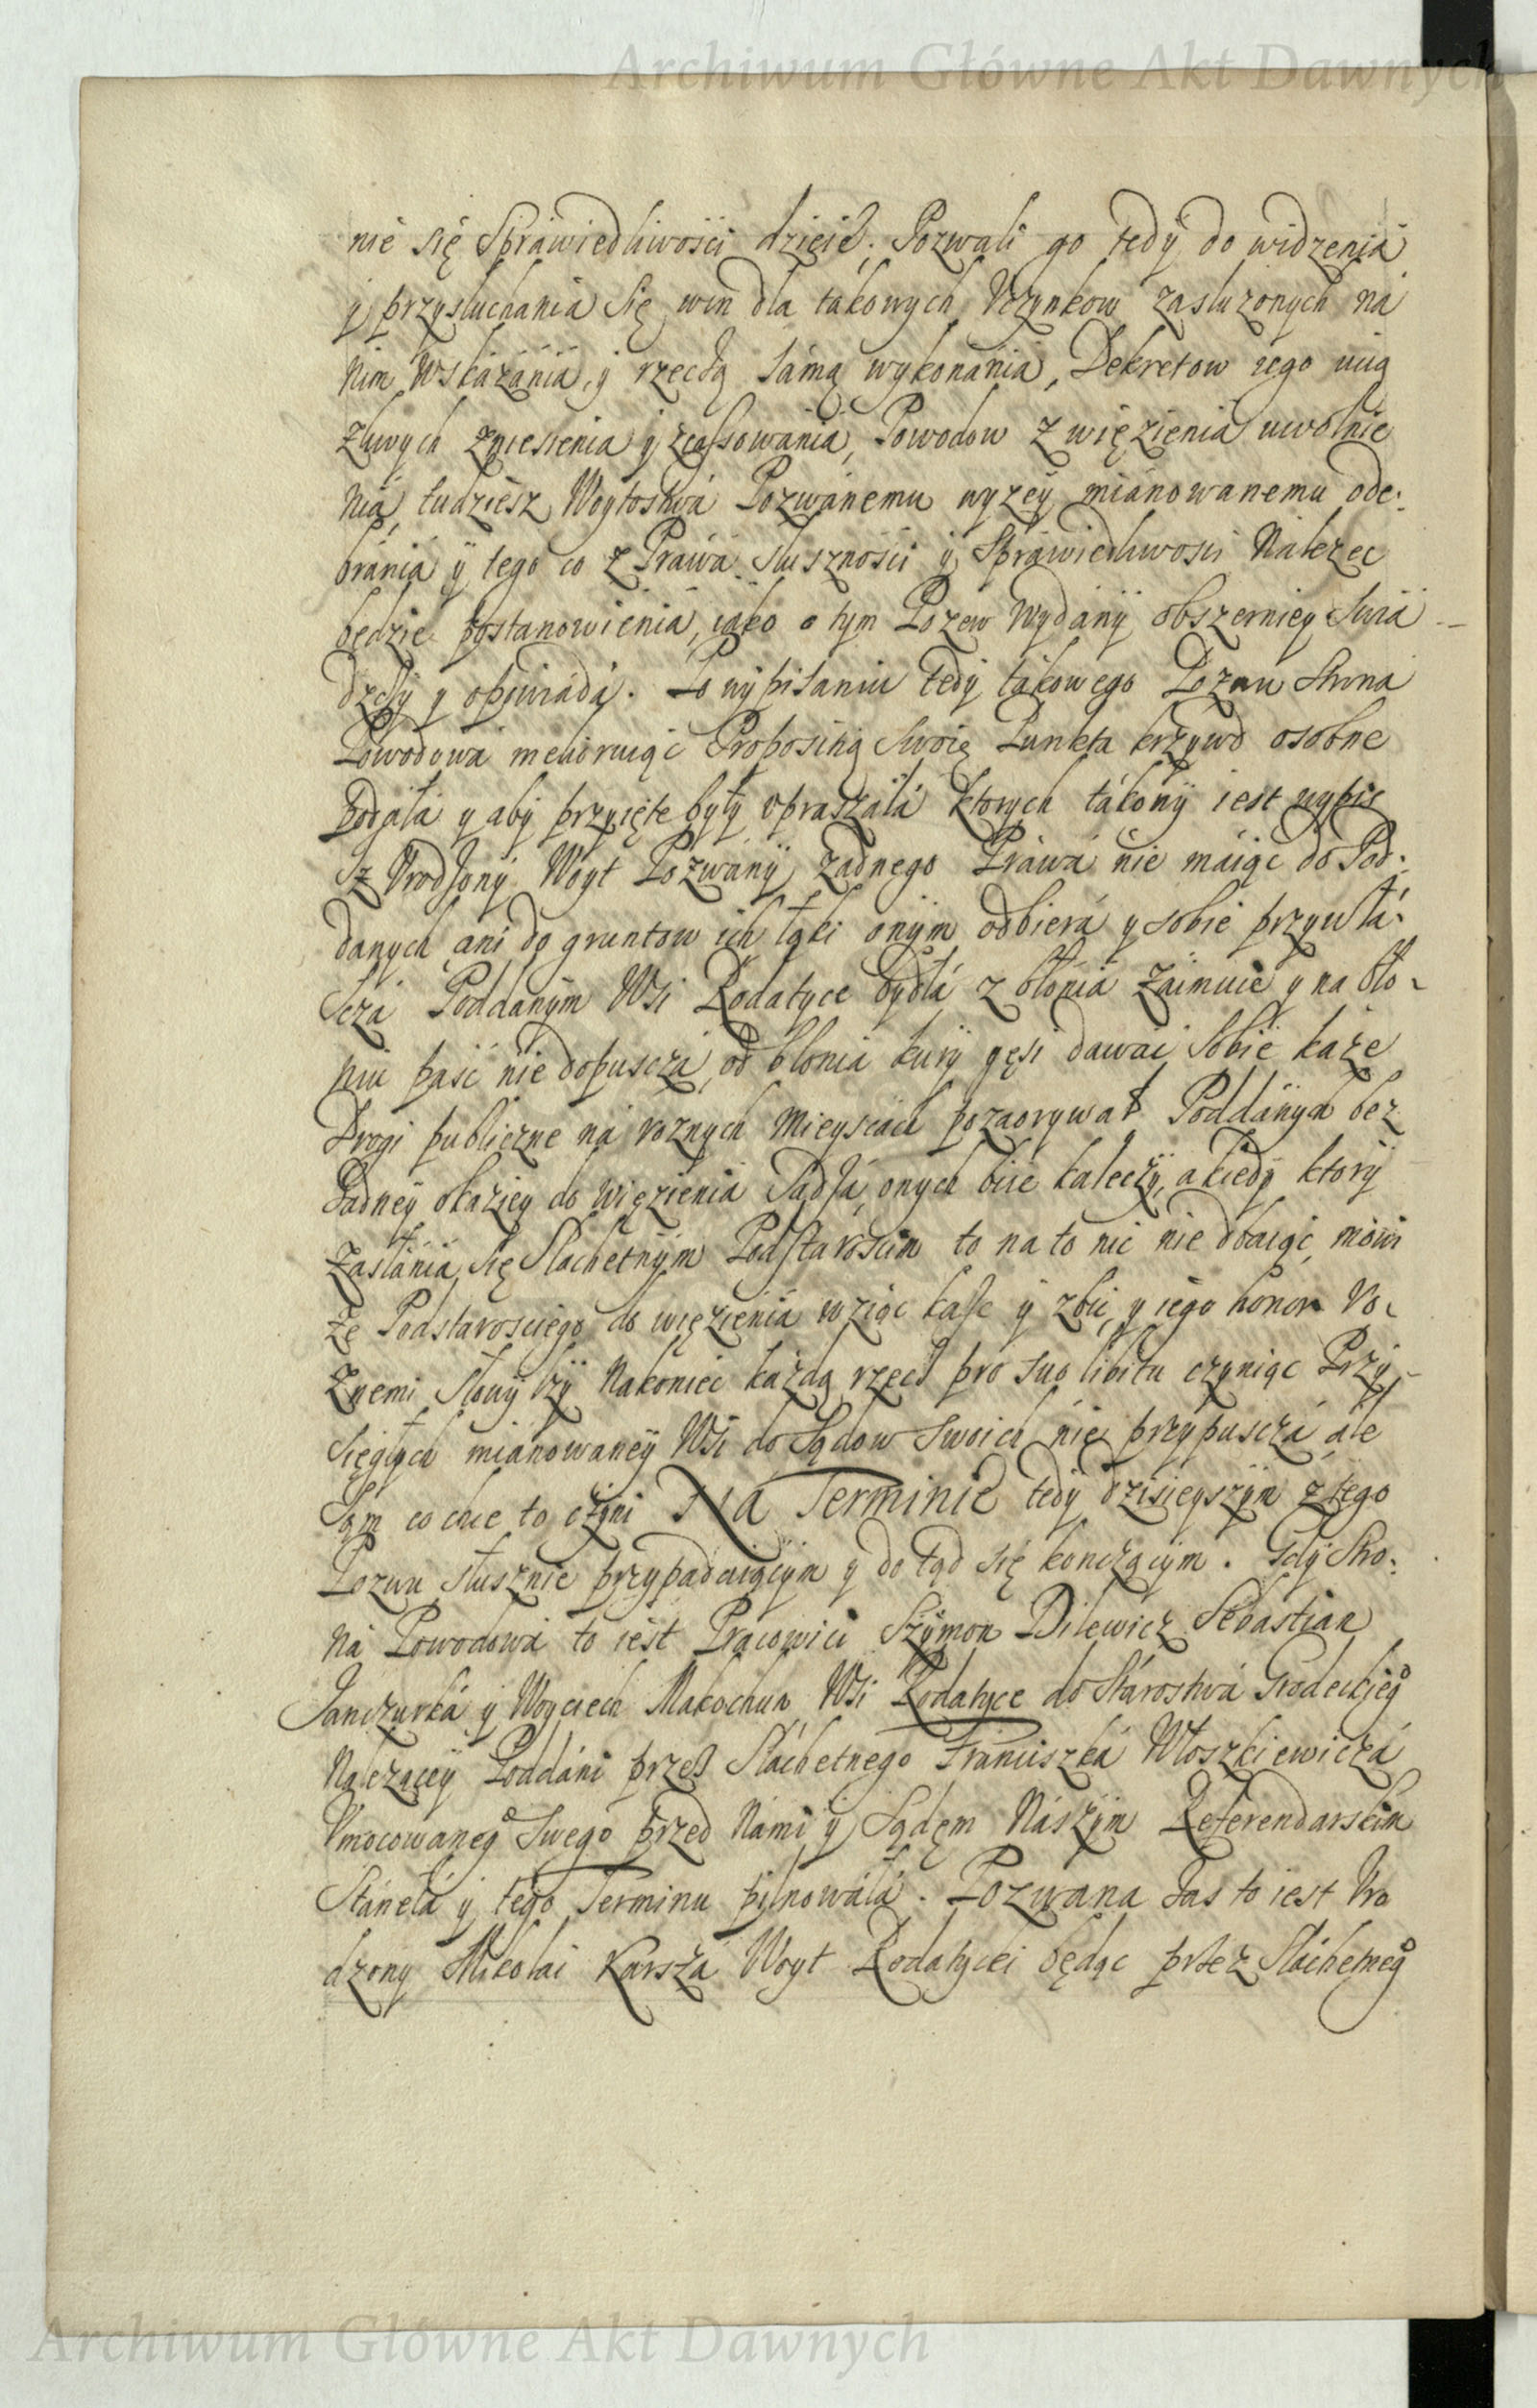 Archiwum Główne Akt Dawnych
nie się Sprawiedliwości dzieie. Pozwali go tedy do widzenia
y przysłuchania się win dla takowych Uczynkow zasłuzonych na
nim wskazania, y rzeczą samą wykonania, Dekretow iego ucią
zliwych zniesienia y zcassowania, Powodow z więzienia uwolnie
nia, tudziesz Woytostwa Pozwanemu wyzey mianowanemu ode:
brania y tego co z Prawa słuszności y Sprawiedliwosci Nalezec
będzie postanowienia, iako o tym Pozew wydany obszerniey Swia
dczy y opiwiada. Po wypisaniu tedy takowego Pozwu Strona
Powodowa melioruiąc Proposition Swoię Punkta krzywd osobne
Podała y aby przyięte były upraszała ktorych takowy iest wypis
Iz Urodzony Woyt Pozwany zadnego Prawa nie maiąc do Pod:
danych ani do gruntow ich łąki onym odbiera y sobie przywła:
scza Poddanym Wsi Rodatyce bydła z błonia zaimuie y na bło-
niu paść nie dopuscza, od błonia kury gęsi dawac Sobie kaze
Drogi publiczne na roznych mieyscach pozaorywał Poddanych bez
zadney okaziey do więzienia Sadza, onych biie kaleczy, a kiedy ktory
zasłania się Slachetnym Podstaroscim to na to nic nie dbaiąc, mowi
ze Podstarosciego do więzienia wziąc kaze y zbic, y iego honor Ro-
znemi słowy lzy Nakoniec kazdą rzecz pro suo libitu czyniąc Przy-
sięgłych mianowaney Wsi do Sądow Swoich nie przypuscza ale
Sam co chce to czyni Na Terminie tedy dzisieyszym z tego
Pozwu słusznie przypadaiącym y do tąd się konczącym. Gdy Stro:
na Powodowa to iest Pracowici Szymon Dilewicz Sebastian
Janczurka y Woyciech Makochun Wsi Rodatyce do Starostwa Grodeckieg°
Nalezącey Poddani przez Slachetnego Franciszka Włoszkiewicza
Umocowaneg° Swego przed Nami y Sądem Naszym Referendarskim
Stanela y tego Terminu pilnowała. Pozwana zas to iest Uro
dzony Mikolai Karsza Woyt Rodatycki będąc przez Slachetneg°
Archiwum Główne Akt Dawnych